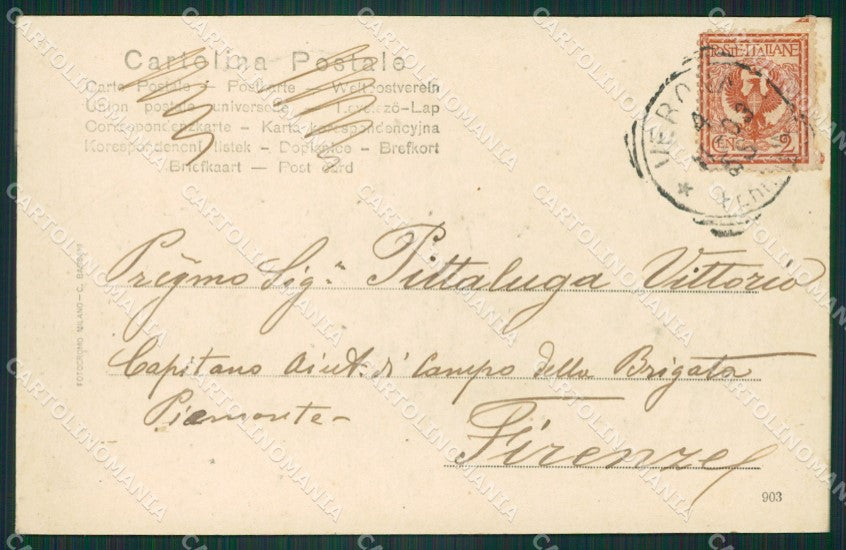 Cartolina Postale
Carte Postale — Postkarte — Weltpostverein
Union postale universelle — Levelező-Lap
Correspondenzkarte — Karta korespondencyjna
Korespondencni listek — Dopisnice — Brefkort
Briefkaart — Post card
POSTE ITALIANE
CENT. 2
VERO
Pregmo Sigr Pittaluga Vittorio
Capitano Aiut. di Campo della Brigata
Piemonte —
Firenze
FOTOCROMO MILANO — C.
903
CARTOLINOMANIA